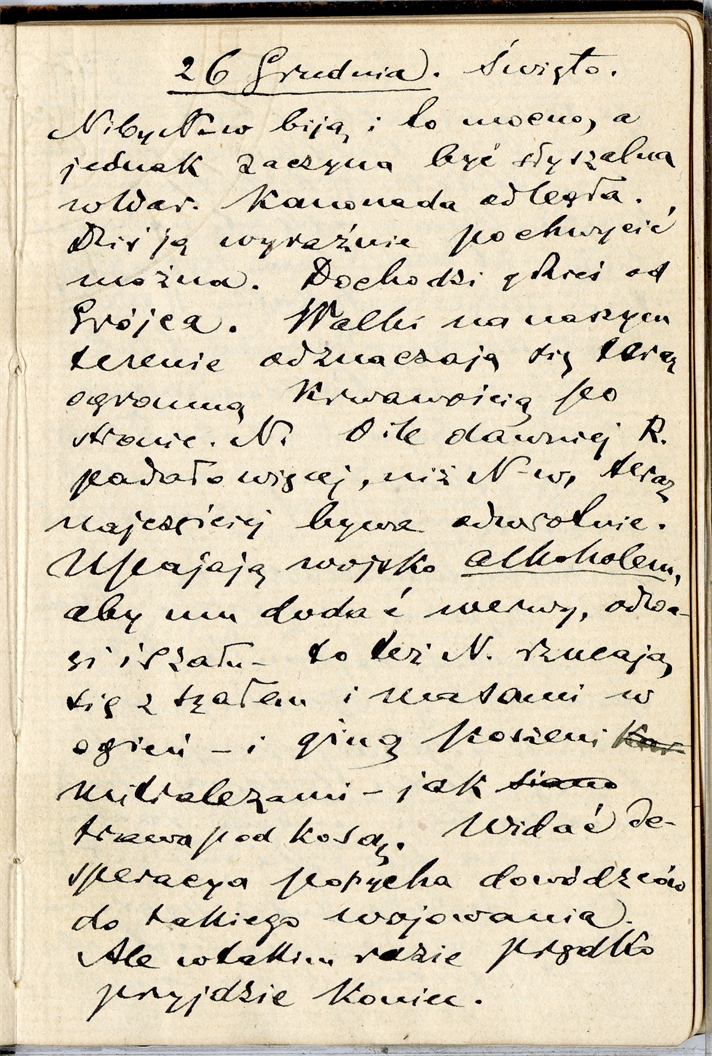 26 Grudnia. Święto.
Niby N-w biją, i to mocno, a
jednak zaczyna być słyszalna
w War. kanonada odległa.
Dziś ją wyraźnie pochwycić
można. Dochodzi gdzieś od
Grójca. Walki na naszym
terenie odznaczają się teraz
ogromną krwawością po
stronie. N. O ile dawniej R.
padało więcej, niż N-w, teraz
najczęściej bywa odwrotnie.
Upajają wojsko alkoholem,
aby mu dodać werwy, odwa-
gi i szału - to też N. rzucają
się z szałem i masami w
ogień - i giną koszeni
mitraliezami - jak siano
trawa pod kosą. Widać de-
speracya popycha dowódzców
do takiego wojowania.
Ale w takim razie prędko
przyjdzie koniec.